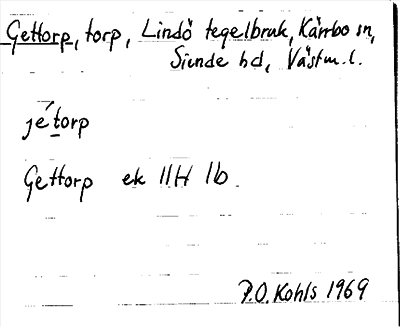 Gettorp, torp, Lindö tegelbruk, Kärrbo sn,
Siende hd, Västm. l.
jétorp
Gettorp ek 11H 1b
P.O. Kohls 1969